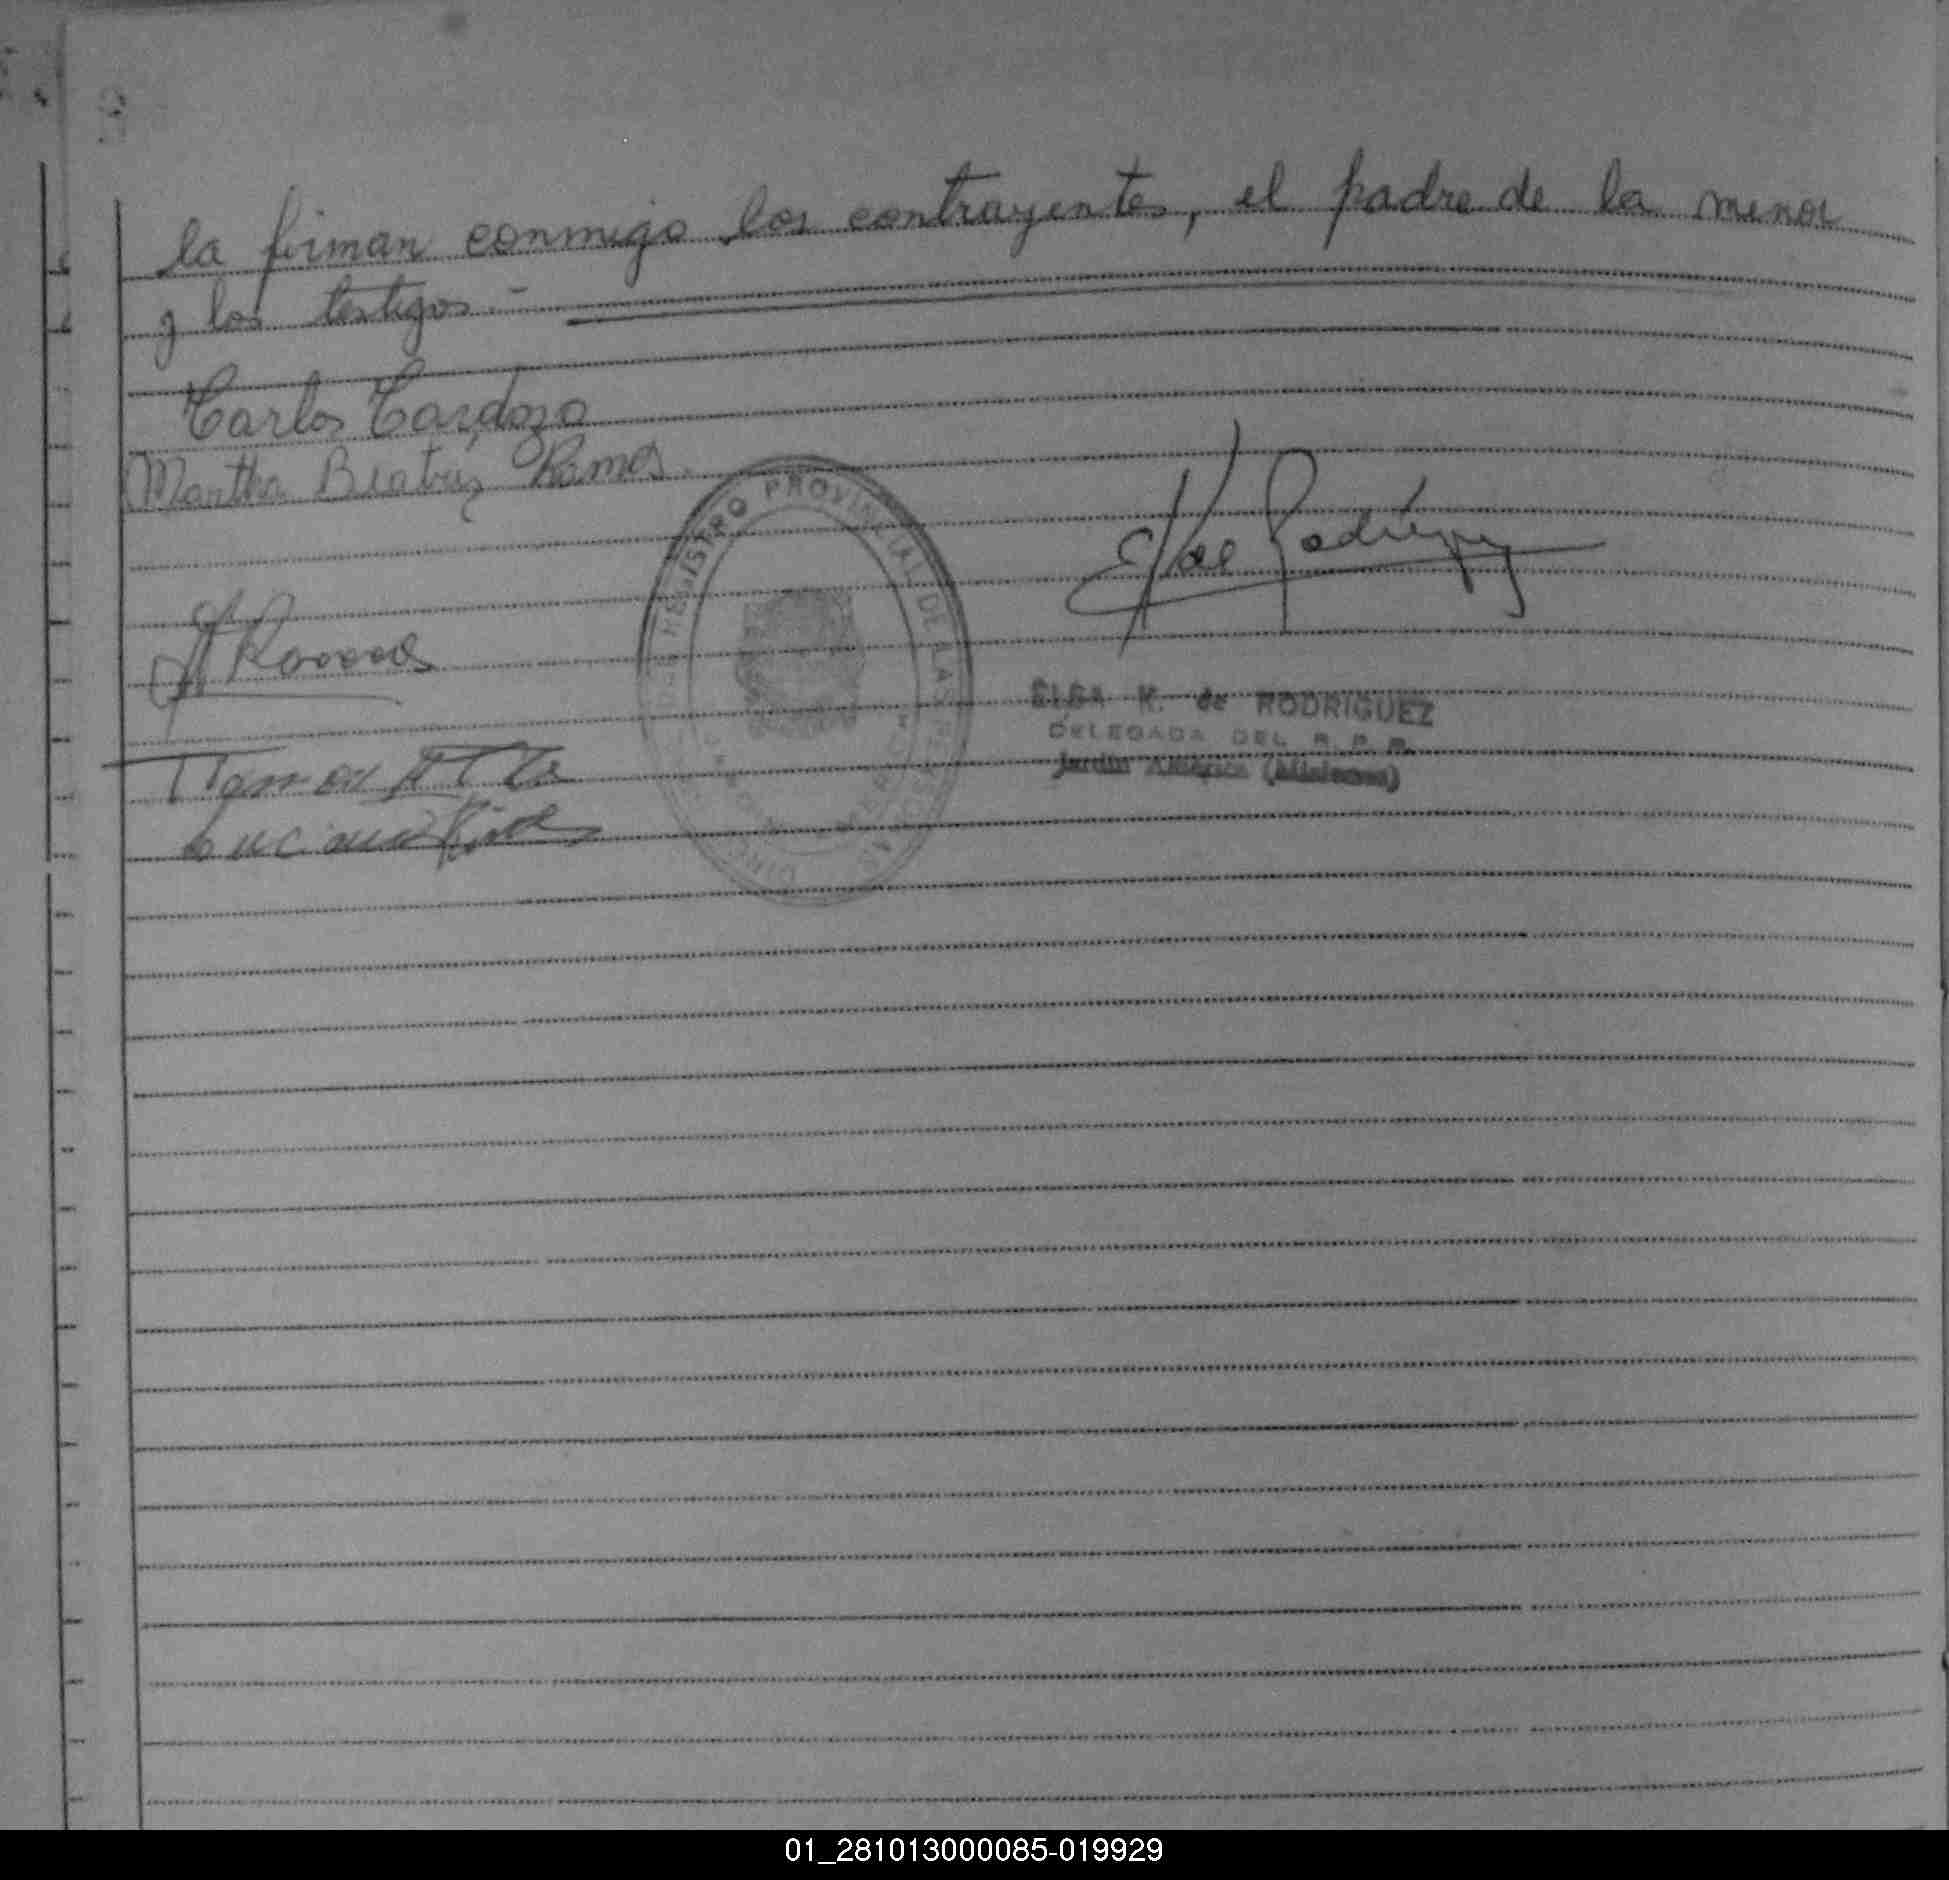 la firman conmigo los contrayentes, el padre de la menor
y los testigos.-
Carlos Cardozo
Martha Beatriz Ramos.
REGISTRO PROVINCIAL DE LAS PERSONAS
E K de Rodríguez
Ramos
ELSA K. de RODRIGUEZ
DELEGADA DEL R. P. P.
Jardín América (Misiones)
01_281013000085-019929